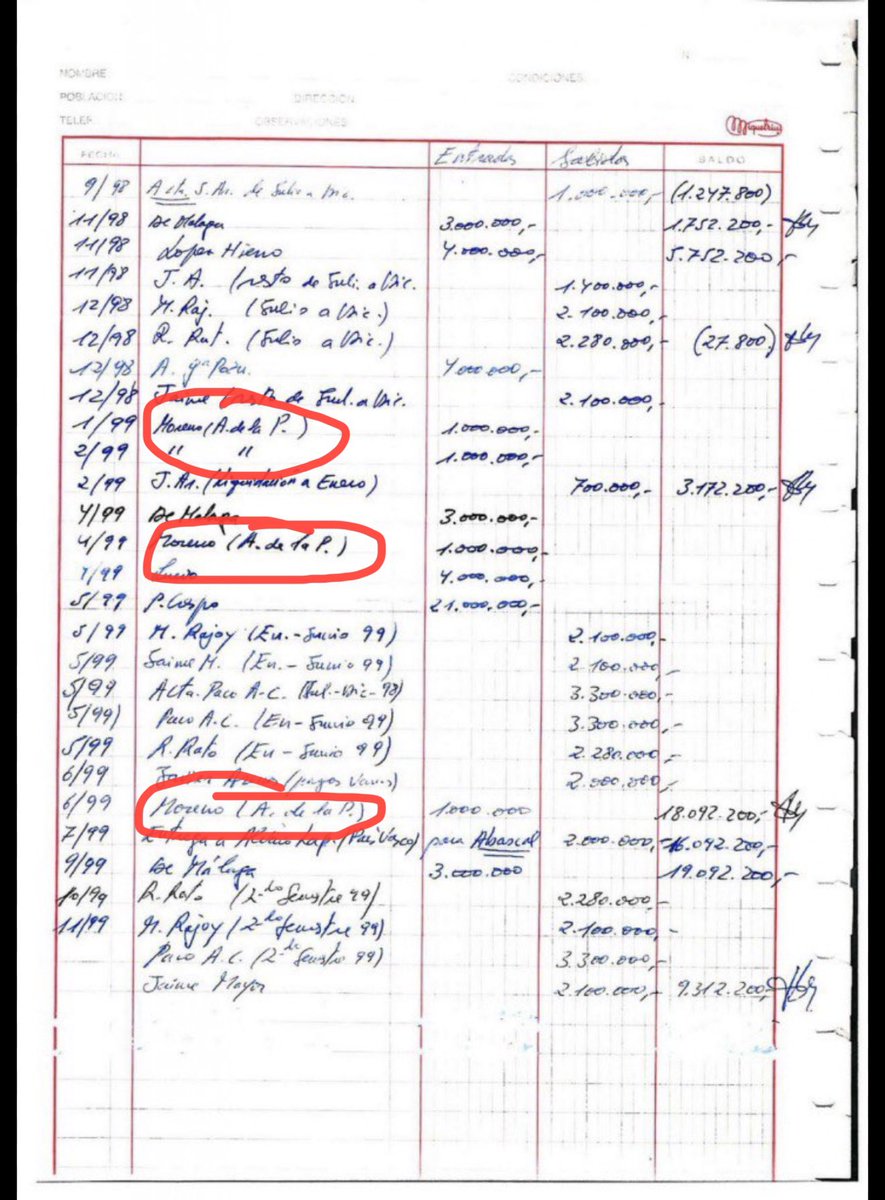 N
NOMBRE CONDICIONES
POBLACION DIRECCION
TELEF. OBSERVACIONES
Miquelrius
FECHA Entradas Salidas SALDO
9/98 Acta. J. Ar. de Julio a Dic. 1.000.000,- (1.247.800)
11/98 De Malaga 3.000.000,- 1.752.200,-
11/98 Lopez Hierro 4.000.000,- 5.752.200,-
11/98 J. A. (resto de Juli. a Dic. 1.400.000,-
12/98 M. Raj. (Julio a Dic.) 2.100.000,-
12/98 R. Rat. (Julio a Dic.) 2.280.000,- (27.800)
12/98 A. 4.000.000,-
12/98 Jaime resto de Jul. a Dic. 2.100.000,-
1/99 Moreno (A. de la P.) 1.000.000,-
2/99 " " 1.000.000,-
2/99 J. Ar. (liquidación a Enero) 700.000,- 3.172.200,-
4/99 De Malaga 3.000.000,-
4/99 Moreno (A. de la P.) 1.000.000,-
4.000.000,-
5/99 P. Crespo 21.000.000,-
5/99 M. Rajoy (En.-Junio 99) 2.100.000,-
5/99 Jaime M. (En.- Junio 99) 2.100.000,-
5/99 Acta. Paco A-C. (Jul.-Dic-98) 3.300.000,-
5/99) Paco A.C. (En-Junio 99) 3.300.000,-
5/99 R. Rato (En-Junio 99) 2.280.000,-
6/99 (pagos varios) 2.000.000,-
6/99 Moreno (A. de la P.) 1.000.000 18.092.200,-
7/99 Entrega a (País Vasco) para Abascal 2.000.000,- 16.092.200,-
9/99 De Málaga 3.000.000 19.092.200,-
10/99 R. Rato (2º Semestre 99) 2.280.000,-
11/99 M. Rajoy (2º Semestre 99) 2.100.000,-
Paco A.C. (2º Semestre 99) 3.300.000,-
Jaime Mayor 2.100.000,- 9.312.200,-